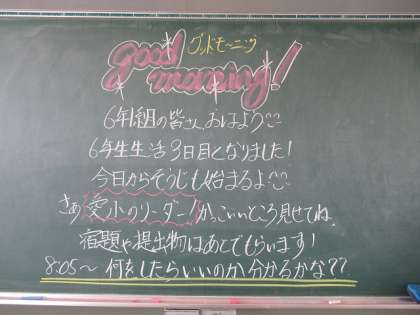 グッドモーニング
good
morning!
6年1組の皆さん、おはよう
6年生生活3日目となりました!
今日からそうじも始まるよ
さぁ愛小のリーダー!かっこいいところ見せてね
宿題や提出物はあとでもらいます!
8:05〜 何をしたらいいのか分かるかな??